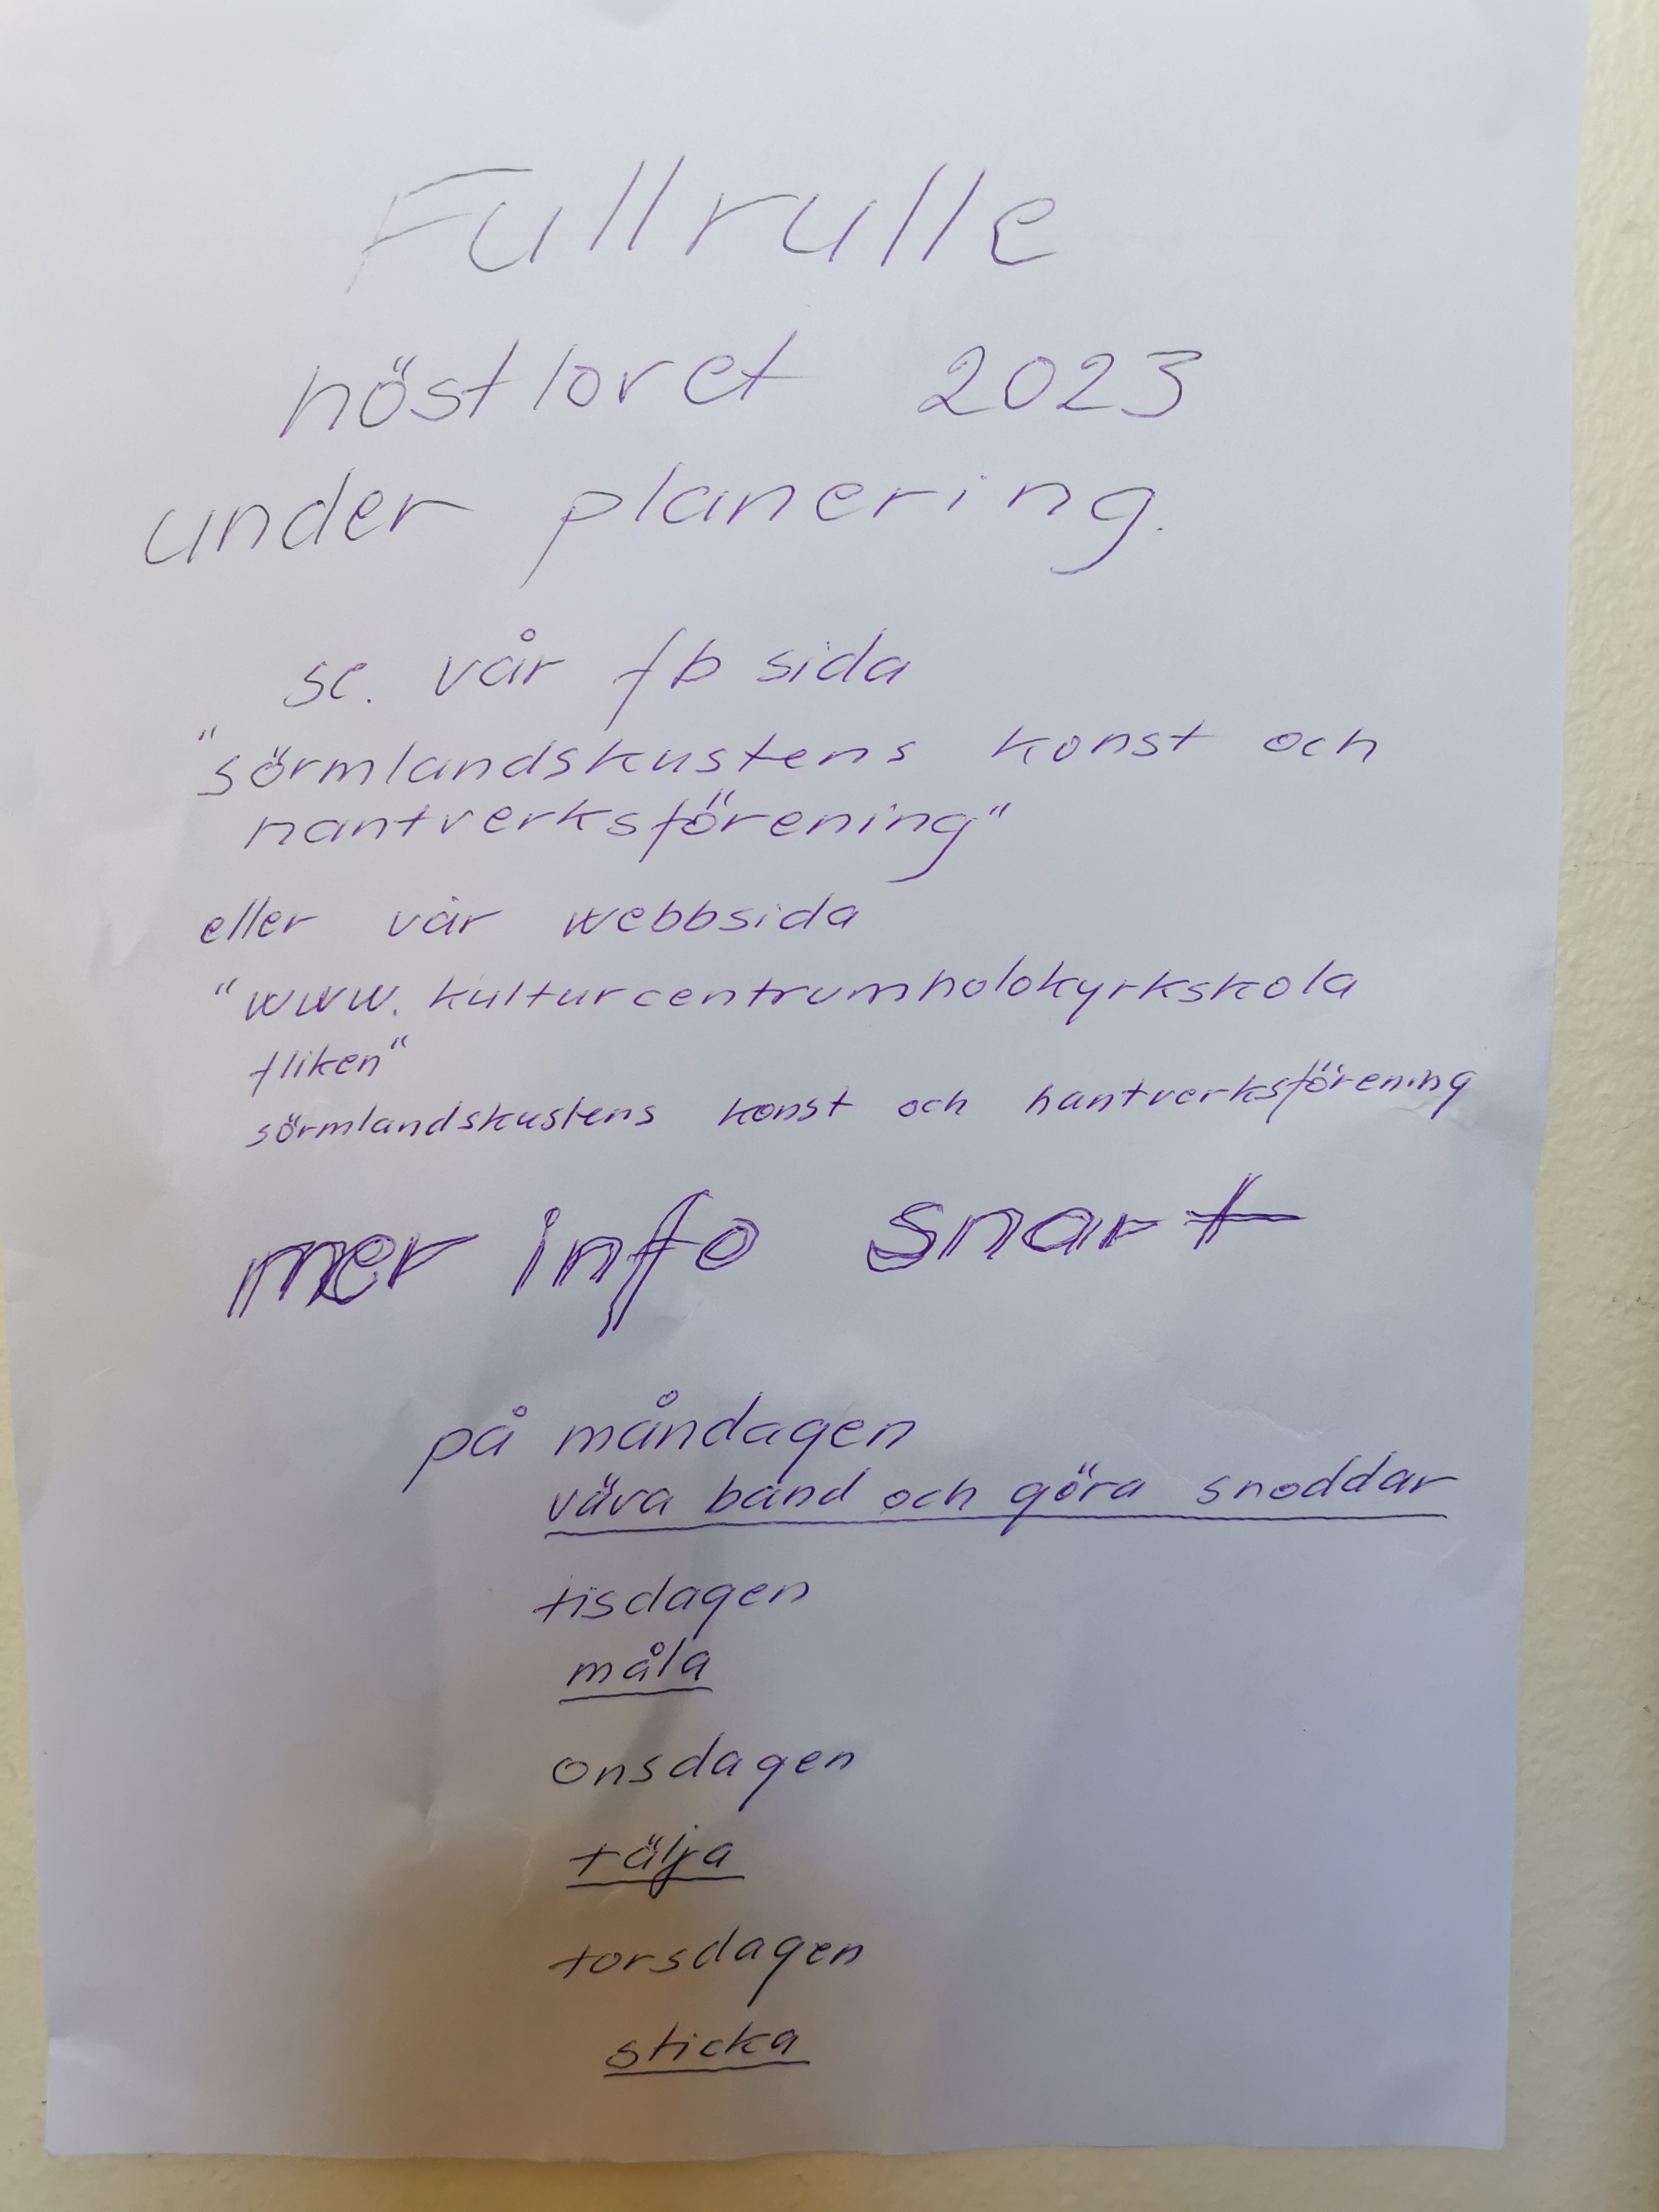 Fullrulle
höstloret 2023
under planering.
se. vår fb sida
"sörmlandskustens konst och
hantverksförening"
eller vår webbsida
"www.kulturcentrumholokyrkskola
fliken"
sörmlandskustens konst och hantverksförening
mer info snart
på måndagen
väva band och göra snoddar
tisdagen
måla
onsdagen
tälja
torsdagen
sticka